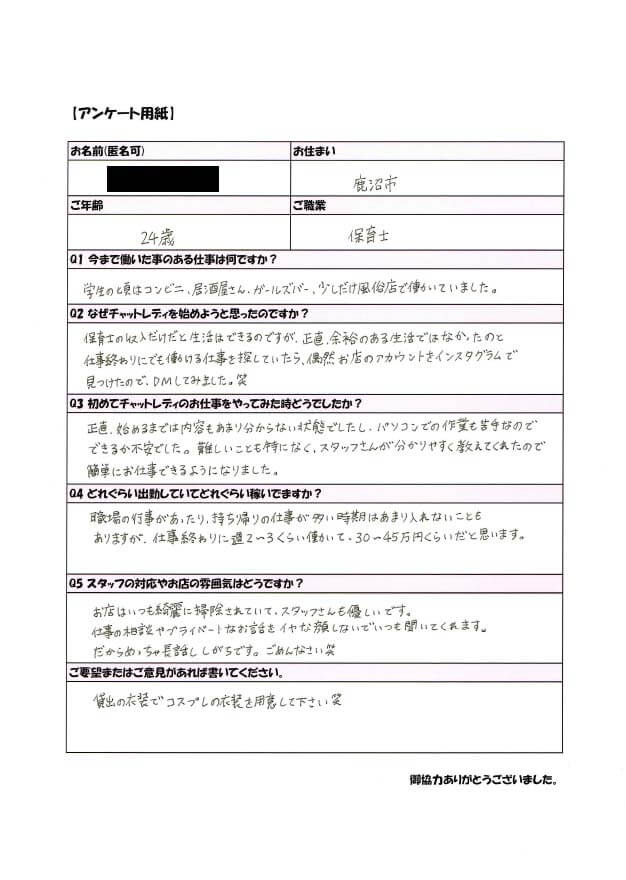 【アンケート用紙】
お名前(匿名可)
お住まい
鹿沼市
ご年齢
ご職業
24歳
保育士
Q1 今まで働いた事のある仕事は何ですか？
学生の頃はコンビニ、居酒屋さん、ガールズバー、少しだけ風俗店で働いていました。
Q2 なぜチャットレディを始めようと思ったのですか？
保育士の収入だけだと生活はできるのですが、正直、余裕のある生活ではなかったのと
仕事終わりにでも働ける仕事を探していたら、偶然お店のアカウントをインスタグラムで
見つけたので、DMしてみました。笑
Q3 初めてチャットレディのお仕事をやってみた時どうでしたか？
正直、始めるまでは内容もあまり分からない状態でしたし、パソコンでの作業も苦手なので
できるか不安でした。難しいことも特になく、スタッフさんが分かりやすく教えてくれたので
簡単にお仕事できるようになりました。
Q4 どれぐらい出勤していてどれぐらい稼いでますか？
職場の行事があったり、持ち帰りの仕事が多い時期はあまり入れないことも
ありますが、仕事終わりに週2〜3くらい働いて、30〜45万円くらいだと思います。
Q5 スタッフの対応やお店の雰囲気はどうですか？
お店はいつも綺麗に掃除されていて、スタッフさんも優しいです。
仕事の相談やプライベートなお話をイヤな顔しないでいつも聞いてくれます。
だからめっちゃ長話ししがちです。ごめんなさい笑
ご要望またはご意見があれば書いてください。
貸出の衣装でコスプレの衣装を用意して下さい笑
御協力ありがとうございました。